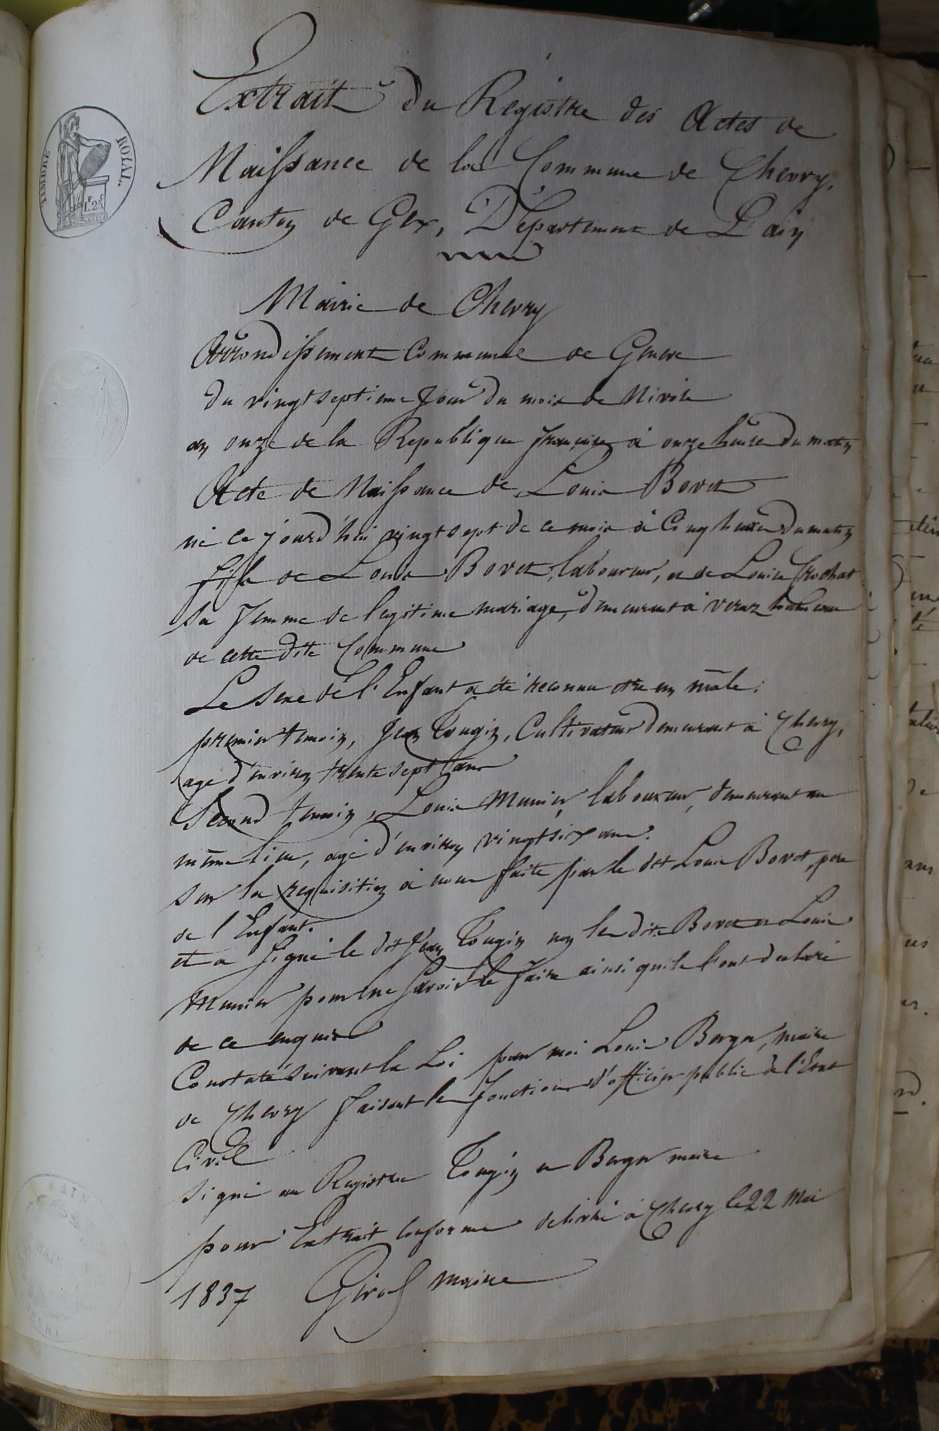 TIMBRE ROYAL.
Extrait du Registre des Actes de
Naissance de la Commune de Chevry,
Canton de Gex, Département de L'ain
Mairie de Chevry
Arrondissement Communal de Geneve
du vingt septieme Jour du mois de Nivose
an onze de la Republique francaise à onze heure du matin
Acte de Naissance de Louis Bovet
né ce jourd'hui vingt sept de ce mois à Cinq heure du matin
fils de Louis Bovet, laboureur, et de Louise Crochat
sa femme de legitime mariage, demeurant à Veraz hameau
de cette dite Commune
Le sexe de l'Enfant a été reconnu etre un mâle;
premier temoin, Jean Tougin, Cultivateur demeurant à Chevry,
agé d'environ trente sept ans
Second temoin, Louis Munier, laboureur, demeurant au
même lieu, agé d'environ vingt six ans.
sur la requisition à nous faite par le dit Louis Bovet, pere
de l'Enfant.
et a signé le dit Jean Tougin non le dit Bovet et Louis
Munier pour ne savoir le faire ainsi qu'ils l'ont declaré
de ce enquis
Constaté suivant la Loi par moi Louis Berger, maire
de Chevry faisant les fonctions d'officier public de l'Etat
Civil
signé au Registre Tougin et Berger maire
pour Extrait conforme delivré à Chevry le 22 Mai
1837 Girod maire